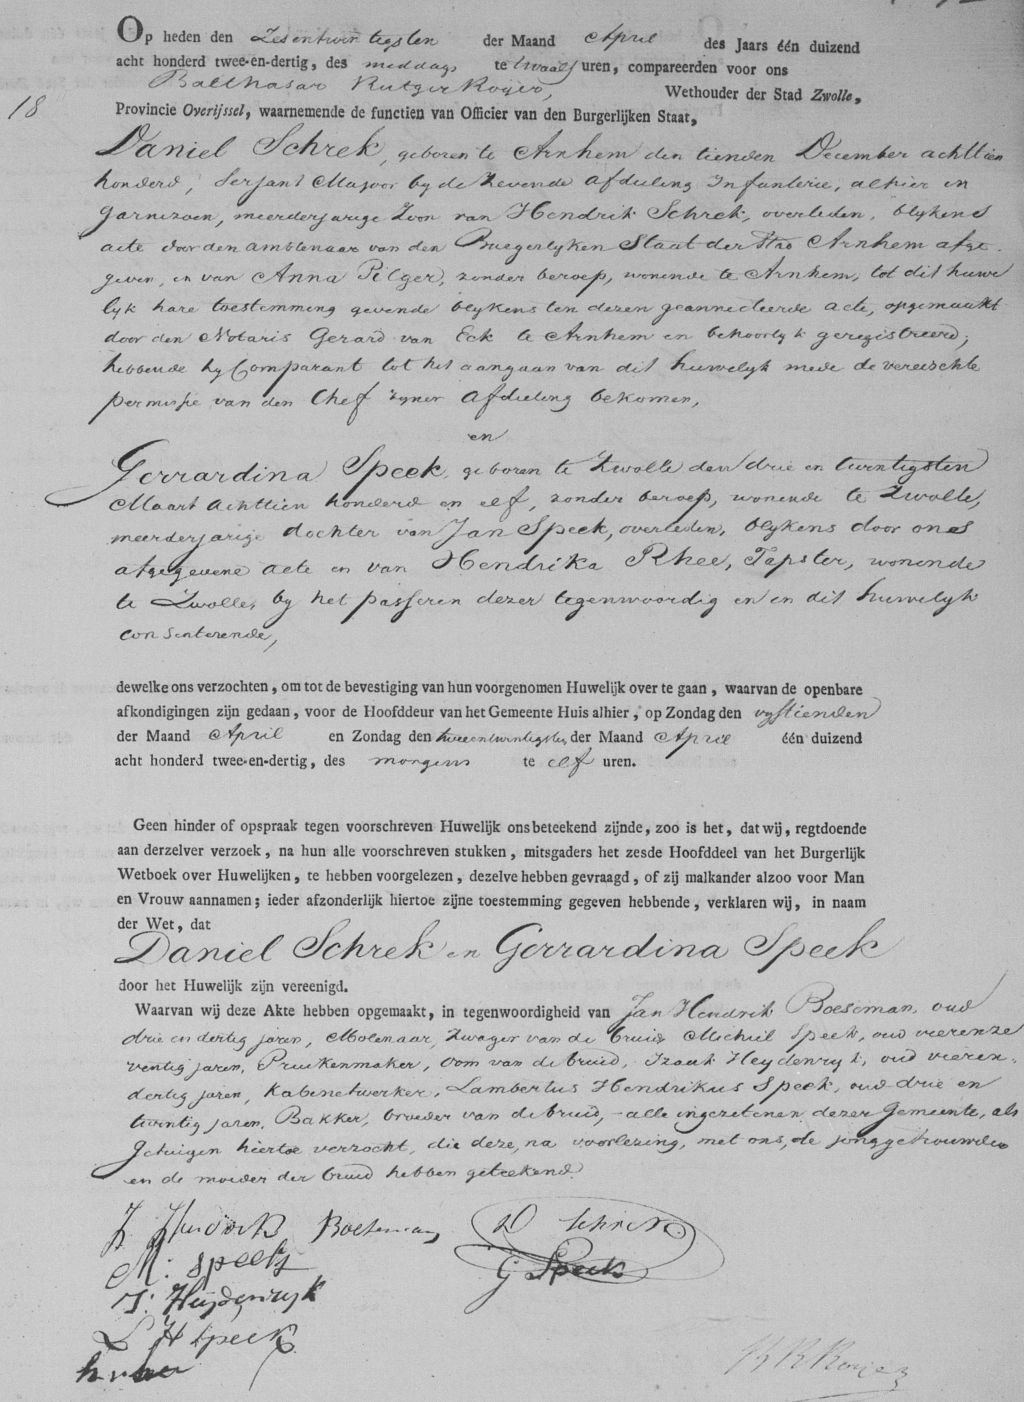 Op heden den Zesentwintigsten der Maand April des Jaars één duizend
acht honderd twee-en-dertig, des middags te twaalf uren, compareerden voor ons
Balthasar Rutger Roijer, Wethouder der Stad Zwolle,
18
Provincie Overijssel, waarnemende de functien van Officier van den Burgerlijken Staat,
Daniel Schrek, geboren te Arnhem den tienden December achttien
honderd, Serjant Majoor by de Zevende Afdeeling Infanterie, alhier in
garnizoen, meerderjarige Zoon van Hendrik Schrek, overleden, blykens
acte door den ambtenaar van den Burgerlyken Staat der Stad Arnhem afge-
geven, en van Anna Pelger, zonder beroep, wonende te Arnhem, tot dit huwe
lyk hare toestemming gevende blykens ten dezen geannecteerde acte, opgemaakt
door den Notaris Gerard van Eck te Arnhem en behoorlyk geregistreerd;
hebbende hy Comparant tot het aangaan van dit huwelyk mede de vereischte
permissie van den Chef zyner Afdeeling bekomen,
en
Gerrardina Speek, geboren te Zwolle den drie en twintigsten
Maart achttien honderd en elf, zonder beroep, wonende te Zwolle,
meerderjarige dochter van Jan Speek, overleden, blykens door ons
afgegevene acte en van Hendrika Rhee, Tapster, wonende
te Zwolle, by het passeren dezer tegenwoordig en in dit huwelyk
consenterende,
dewelke ons verzochten, om tot de bevestiging van hun voorgenomen Huwelijk over te gaan, waarvan de openbare
afkondigingen zijn gedaan, voor de Hoofddeur van het Gemeente Huis alhier, op Zondag den vyftienden
der Maand April en Zondag den tweeentwintigsten der Maand April één duizend
acht honderd twee-en-dertig, des morgens te elf uren.
Geen hinder of opspraak tegen voorschreven Huwelijk ons beteekend zijnde, zoo is het, dat wij, regtdoende
aan derzelver verzoek, na hun alle voorschreven stukken, mitsgaders het zesde Hoofddeel van het Burgerlijk
Wetboek over Huwelijken, te hebben voorgelezen, dezelve hebben gevraagd, of zij malkander alzoo voor Man
en Vrouw aannamen; ieder afzonderlijk hiertoe zijne toestemming gegeven hebbende, verklaren wij, in naam
der Wet, dat
Daniel Schrek en Gerrardina Speek
door het Huwelijk zijn vereenigd.
Waarvan wij deze Akte hebben opgemaakt, in tegenwoordigheid van Jan Hendrik Boeseman, oud
drie en dertig jaren, Molenaar, Zwager van de bruid Michiel Speek, oud vierenze
ventig jaren, Pruikenmaker, Oom van de bruid, Izaak Heydenryk, oud vieren-
dertig jaren, Kabinetwerker, Lambertus Hendrikus Speek, oud drie en
twintig jaren, Bakker, broeder van de bruid, - alle ingezetenen dezer Gemeente, als
Getuigen hiertoe verzocht, die deze, na voorlezing, met ons, de jonggetrouwden
en de moeder der bruid hebben geteekend.
J Hendrik Boeseman D Schrek
M: Speek G Speek
I: Heijdenrijk
L H Speek
B R Roijer